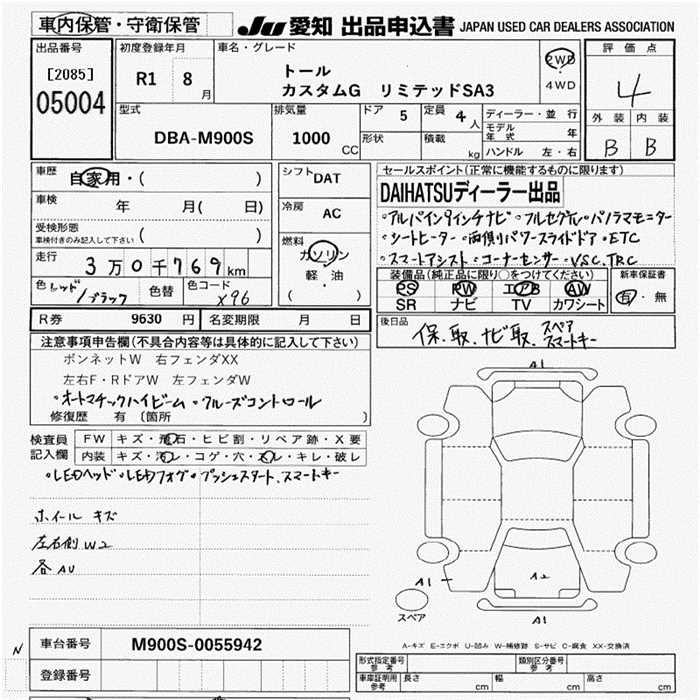 車内保管・守衛保管
JU 愛知 出品申込書 JAPAN USED CAR DEALERS ASSOCIATION
出品番号
[2085]
05004
初度登録年月
R1 8 月
車名・グレード
トール
カスタムG リミテッドSA3
2WD
4WD
評価点
4
外装 内装
B B
型式
DBA-M900S
排気量
1000 CC
ドア 5
定員 4 人
形状
積載 kg
ディーラー・並行
モデル年式 年
ハンドル 左・右
車歴
自家用・( )
車検
年 月( 日)
受検形態
車検付きのみ記入して下さい ( )
走行
3万0千769km
色 レッド/ブラック
色替
色コード X96
シフト DAT
冷房 AC
燃料
ガソリン
軽・油
( )
セールスポイント(正常に機能するものに限ります)
DAIHATSUディーラー出品
・アルパイン9インチナビ・フルセグTV・パノラマモニター
・シートヒーター・両側パワースライドドア・ETC
・スマートアシスト・コーナーセンサー・VSC,TRC
装備品(純正品に限り○をつけてください)
PS PW エアB AW
SR ナビ TV カワシート
新車保証書
有・無
R券 9630 円
名変期限 月 日
後日品
保.取.ナビ取.スペアスマートキー
注意事項申告欄(不具合内容等は具体的に記入して下さい)
ボンネットW 右フェンダXX
左右F・RドアW 左フェンダW
・オートマチックハイビーム・クルーズコントロール
修復歴 有(箇所 )
検査員記入欄
FW キズ・飛石・ヒビ割・リペア跡・X要
内装 キズ・汚レ・コゲ・穴・スレ・キレ・破レ
・LEDヘッド・LEDフォグ・プッシュスタート.スマートキー
ホイール キズ
左右側W2
各AU
A1
A1
A2
A1
スペア
A-キズ E-エクボ U-凹み W-補修跡 S-サビ C-腐食 XX-交換済
N
車台番号 M900S-0055942
登録番号
形式指定番号 参考
類別区分番号 参考
車庫証明用 参考
長さ cm
幅 cm
高さ cm